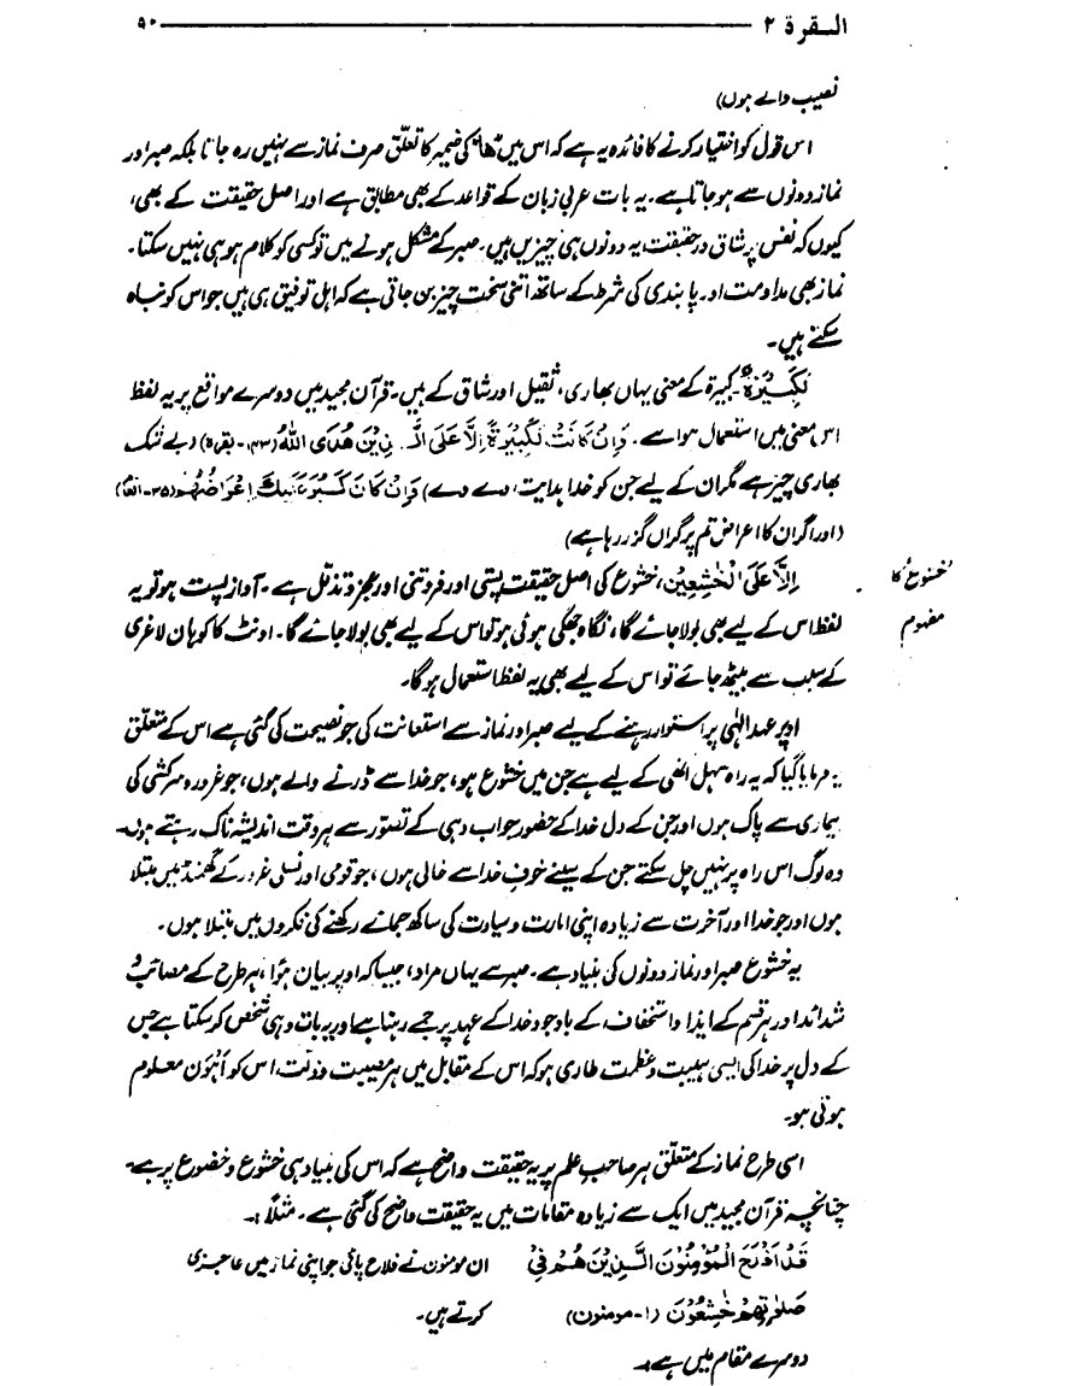 البقرة ۲ ۹۰
نصیب والے ہوں)
اس قول کو اختیار کرنے کا فائدہ یہ ہے کہ اس میں ’ھا‘ کی ضمیر کا تعلّق صرف نماز سے نہیں رہ جاتا بلکہ صبر اور
نماز دونوں سے ہو جاتا ہے۔ یہ بات عربی زبان کے قواعد کے بھی مطابق ہے اور اصل حقیقت کے بھی،
کیوں کہ نفس پر شاق درحقیقت یہ دونوں ہی چیزیں ہیں۔ صبر کے مشکل ہونے میں تو کسی کو کلام ہو ہی نہیں سکتا۔
نماز بھی مداومت اور پابندی کی شرط کے ساتھ اتنی سخت چیز بن جاتی ہے کہ اہل توفیق ہی ہیں جو اس کو نباہ
سکتے ہیں۔
لَكَبِيْرَةٌ۔ کبیرۃ کے معنی یہاں بھاری، ثقیل اور شاق کے ہیں۔ قرآن مجید میں دوسرے مواقع پر یہ لفظ
اس معنی میں استعمال ہوا ہے۔ وَاِنْ كَانَتْ لَكَبِيْرَةً اِلَّا عَلَى الَّذِيْنَ هَدَى اللّٰهُ (۱۴۳۔ بقرہ) (بے شک
بھاری چیز ہے مگر ان کے لیے جن کو خدا ہدایت دے دے) وَاِنْ كَانَ كَبُرَ عَلَيْكَ اِعْرَاضُهُمْ (۳۵۔ انعام)
(اور اگر ان کا اعراض تم پر گراں گزر رہا ہے)
خشوع کا
مفہوم
اِلَّا عَلَى الْخٰشِعِيْنَ، خشوع کی اصل حقیقت پستی اور فروتنی اور عجز و تذلّل ہے۔ آواز پست ہو تو یہ
لفظ اس کے لیے بھی بولا جائے گا، نگاہ جھکی ہوئی ہو تو اس کے لیے بھی بولا جائے گا۔ اونٹ کا کوہان لاغری
کے سبب سے بیٹھ جائے تو اس کے لیے بھی یہ لفظ استعمال ہو گا۔
اوپر عہد الٰہی پر استوار رہنے کے لیے صبر اور نماز سے استعانت کی جو نصیحت کی گئی ہے اس کے متعلّق
یہ فرمایا گیا کہ یہ راہ سہل انھی کے لیے ہے جن میں خشوع ہو، جو خدا سے ڈرنے والے ہوں، جو غرور و سرکشی کی
بیماری سے پاک ہوں اور جن کے دل خدا کے حضور جواب دہی کے تصوّر سے ہر وقت اندیشہ ناک رہتے ہوں۔
وہ لوگ اس راہ پر نہیں چل سکتے جن کے سینے خوفِ خدا سے خالی ہوں، جو قومی اور نسلی غرور کے گھمنڈ میں مبتلا
ہوں اور جو خدا اور آخرت سے زیادہ اپنی امارت و سیادت کی ساکھ جمائے رکھنے کی فکروں میں مبتلا ہوں۔
یہ خشوع صبر اور نماز دونوں کی بنیاد ہے۔ صبر سے یہاں مراد، جیسا کہ اوپر بیان ہوُا، ہر طرح کے مصائب و
شدائد اور ہر قسم کے ایذا و استخفاف کے باوجود خدا کے عہد پر جمے رہنا ہے اور یہ بات وہی شخص کر سکتا ہے جس
کے دل پر خدا کی ایسی ہیبت و عظمت طاری ہو کہ اس کے مقابل میں ہر مصیبت و ذلّت اس کو اَہْوَن معلوم
ہوتی ہو۔
اسی طرح نماز کے متعلّق ہر صاحبِ علم پر یہ حقیقت واضح ہے کہ اس کی بنیاد ہی خشوع و خضوع پر ہے۔
چنانچہ قرآن مجید میں ایک سے زیادہ مقامات میں یہ حقیقت واضح کی گئی ہے۔ مثلاً :۔
قَدْ اَفْلَحَ الْمُؤْمِنُوْنَ الَّذِيْنَ هُمْ فِيْ ان مومنوں نے فلاح پائی جو اپنی نماز میں عاجزی
صَلٰوتِهِمْ خٰشِعُوْنَ (۱۔ مومنون) کرتے ہیں۔
دوسرے مقام میں ہے :۔